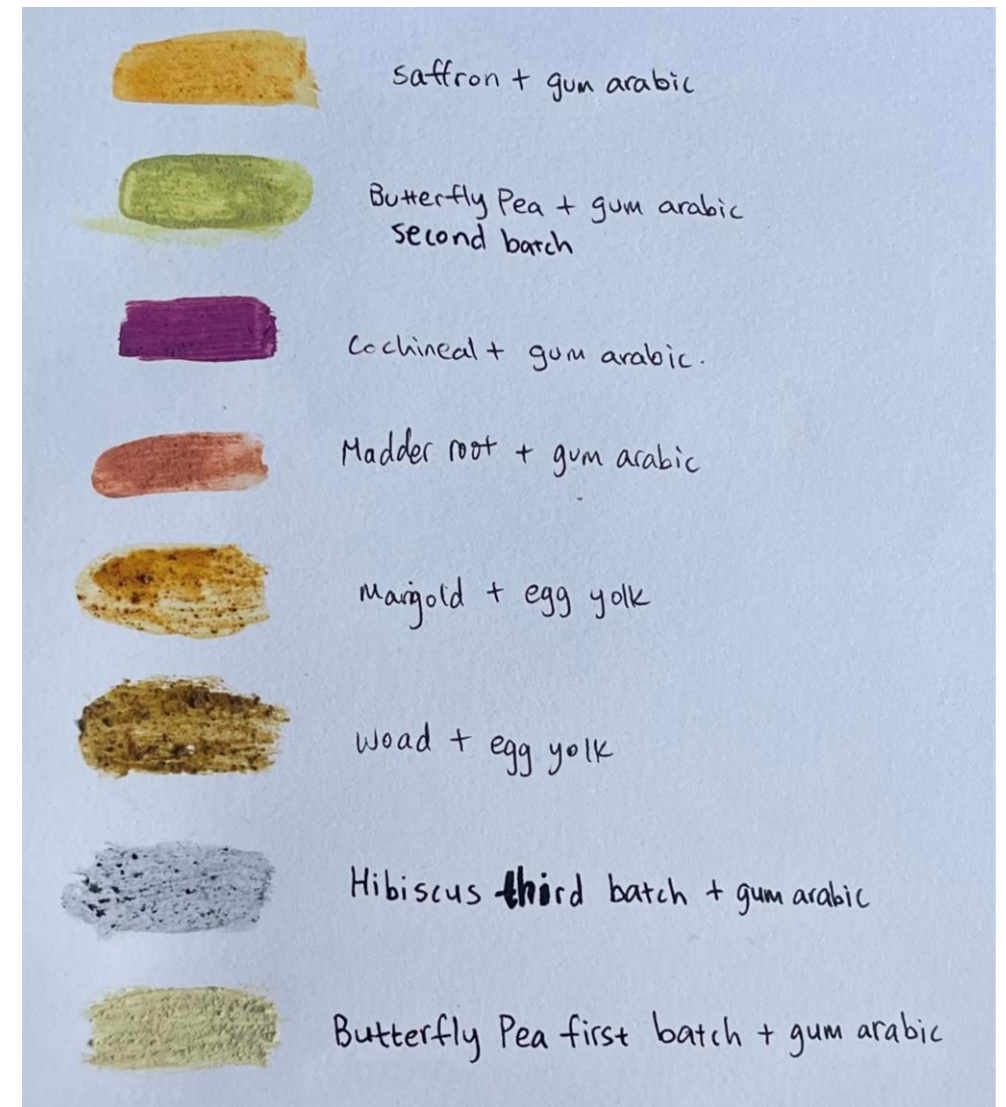 Saffron + gum arabic
Butterfly Pea + gum arabic
second batch
Cochineal + gum arabic.
Madder root + gum arabic
Marigold + egg yolk
Woad + egg yolk
Hibiscus third batch + gum arabic
Butterfly Pea first batch + gum arabic